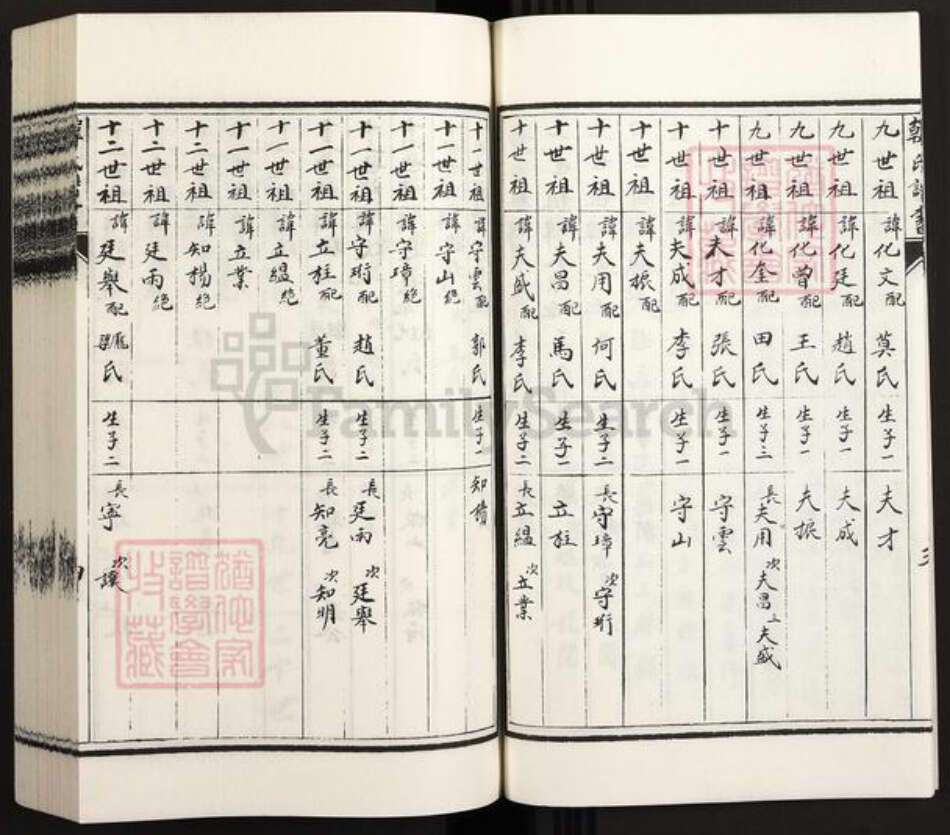 韓氏譜書
九世祖 諱化文配 莫氏 生子一 夫才
九世祖 諱化廷配 趙氏 生子一 夫成
九世祖 諱化曾配 王氏 生子一 夫振
九世祖 諱化奎配 田氏 生子三 長夫用 次夫昌 三夫盛
十世祖 諱夫才配 張氏 生子一 守雲
十世祖 諱夫成配 李氏 生子一 守山
十世祖 諱夫振配
十世祖 諱夫用配 何氏 生子二 長守璋 次守珩
十世祖 諱夫昌配 馬氏 生子一 立柱
十世祖 諱夫盛配 李氏 生子二 長立緼 次立業
十一世祖 諱守雲配 郭氏 生子一 知
十一世祖 諱守山絕
十一世祖 諱守璋絕
十一世祖 諱守珩配 趙氏 生子二 長廷雨 次廷舉
十一世祖 諱立柱配 董氏 生子二 長知亮 次知明
十一世祖 諱立緼絕
十一世祖 諱立業
十二世祖 諱知楊絕
十二世祖 諱廷雨絕
十二世祖 諱廷舉配 氏 生子二 長寧 次
FamilySearch